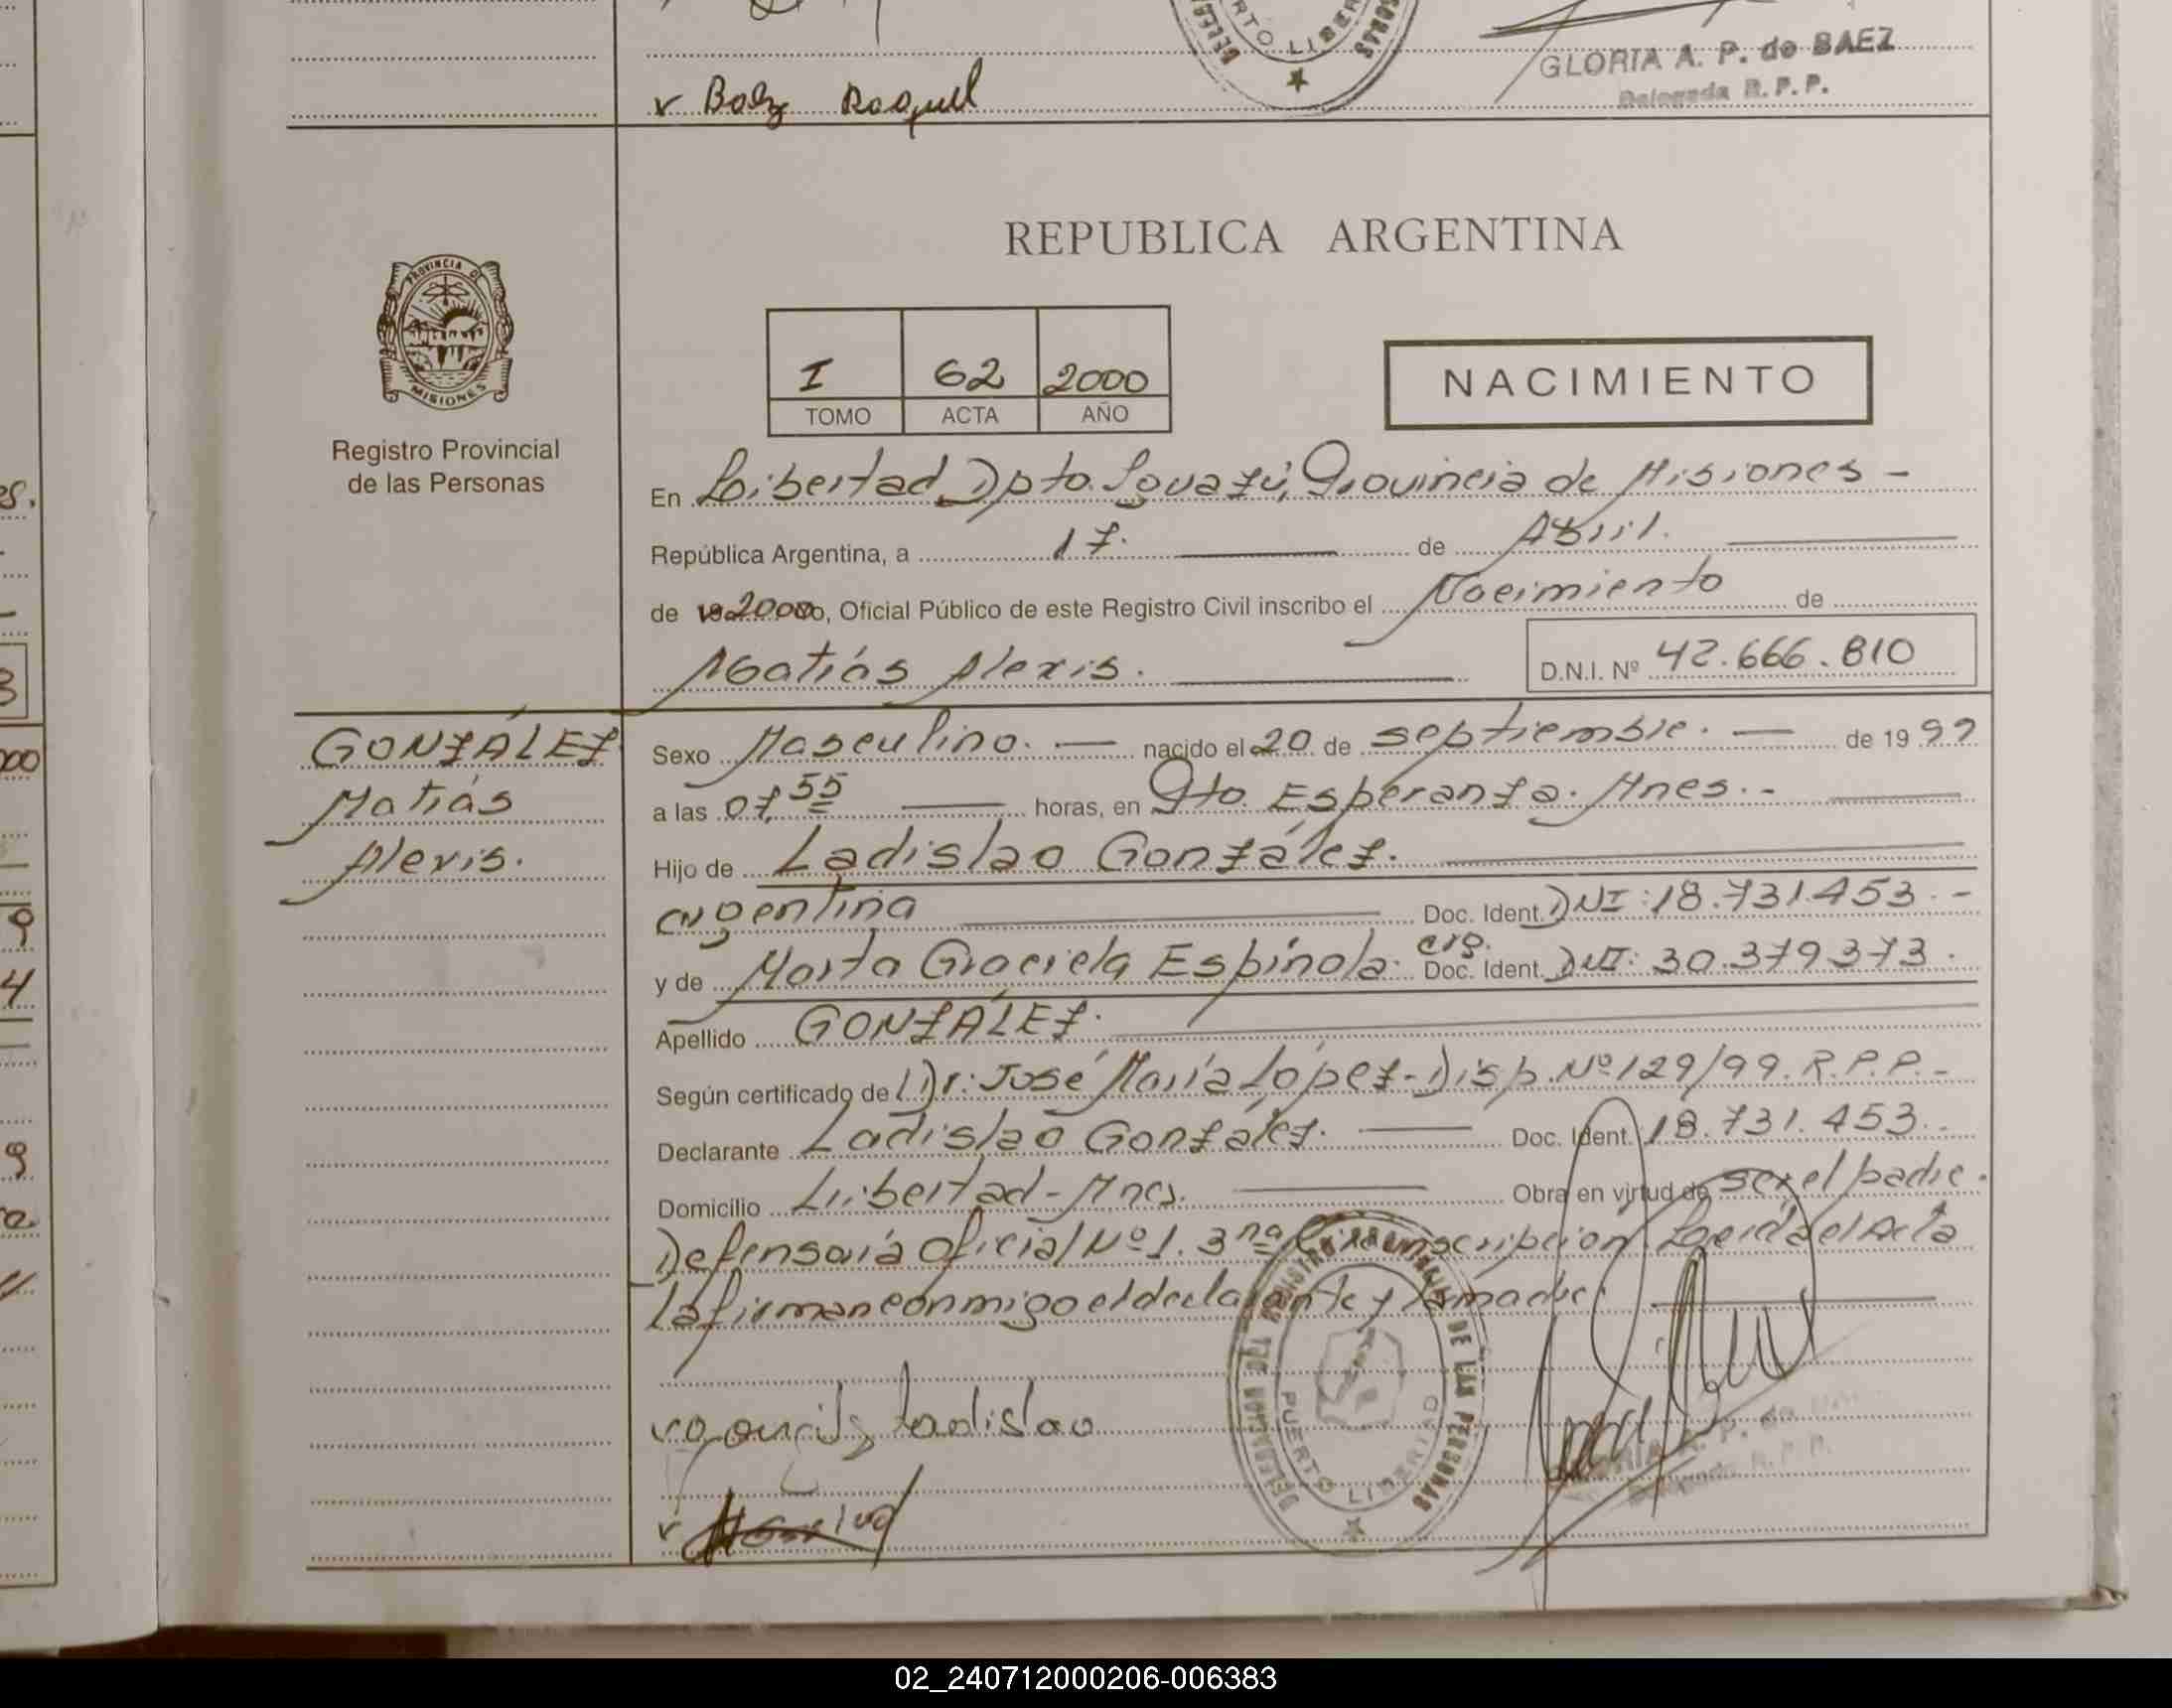 GLORIA A. P. de BAEZ
Delegada R.P.P.
v Baez Raquel
REPUBLICA ARGENTINA
PROVINCIA DE
MISIONES
I 62 2000
TOMO ACTA AÑO
NACIMIENTO
Registro Provincial
de las Personas
En Libertad Dpto. Iguazú, Provincia de Misiones -
República Argentina, a 17. de Abril.
de 2000, Oficial Público de este Registro Civil inscribo el Nacimiento de
Matías Alexis.
D.N.I. Nº 42.666.810
GONZÁLEZ
Matías
Alexis.
Sexo Masculino. nacido el 20 de septiembre. de 1999
a las 07,55 horas, en Pto. Esperanza. Mnes. -
Hijo de Ladislao González.
argentina Doc. Ident. DNI: 18.731.453. -
y de Marta Graciela Espínola. arg. Doc. Ident. DNI: 30.379.373.
Apellido GONZÁLEZ.
Según certificado de Dr: José María López - Disp. Nº 129/99. R.P.P. -
Declarante Ladislao González. Doc. Ident. 18.731.453.
Domicilio Libertad - Mnes. Obra en virtud de ser el padre.
Defensoría Oficial Nº 1. 3ra Circunscripción. Leída el Acta
la firman conmigo el declarante y la madre.
Ladislao
REGISTRO PROVINCIAL DE LAS PERSONAS
PUERTO LIBERTAD
02_240712000206-006383